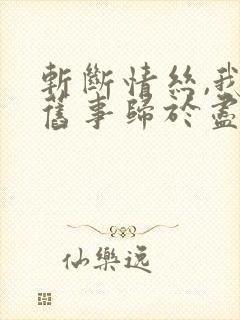 斬斷情絲,我
舊事歸於盡
仙樂逸